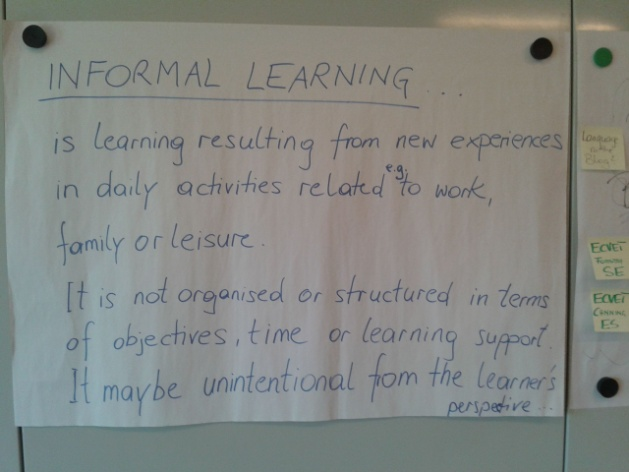 INFORMAL LEARNING...
is learning resulting from new experiences
in daily activities related e.g. to work,
family or leisure.
It is not organised or structured in terms
of objectives, time or learning support.
It maybe unintentional from the learner's
perspective...
ECVET
SE
ECVET
ES